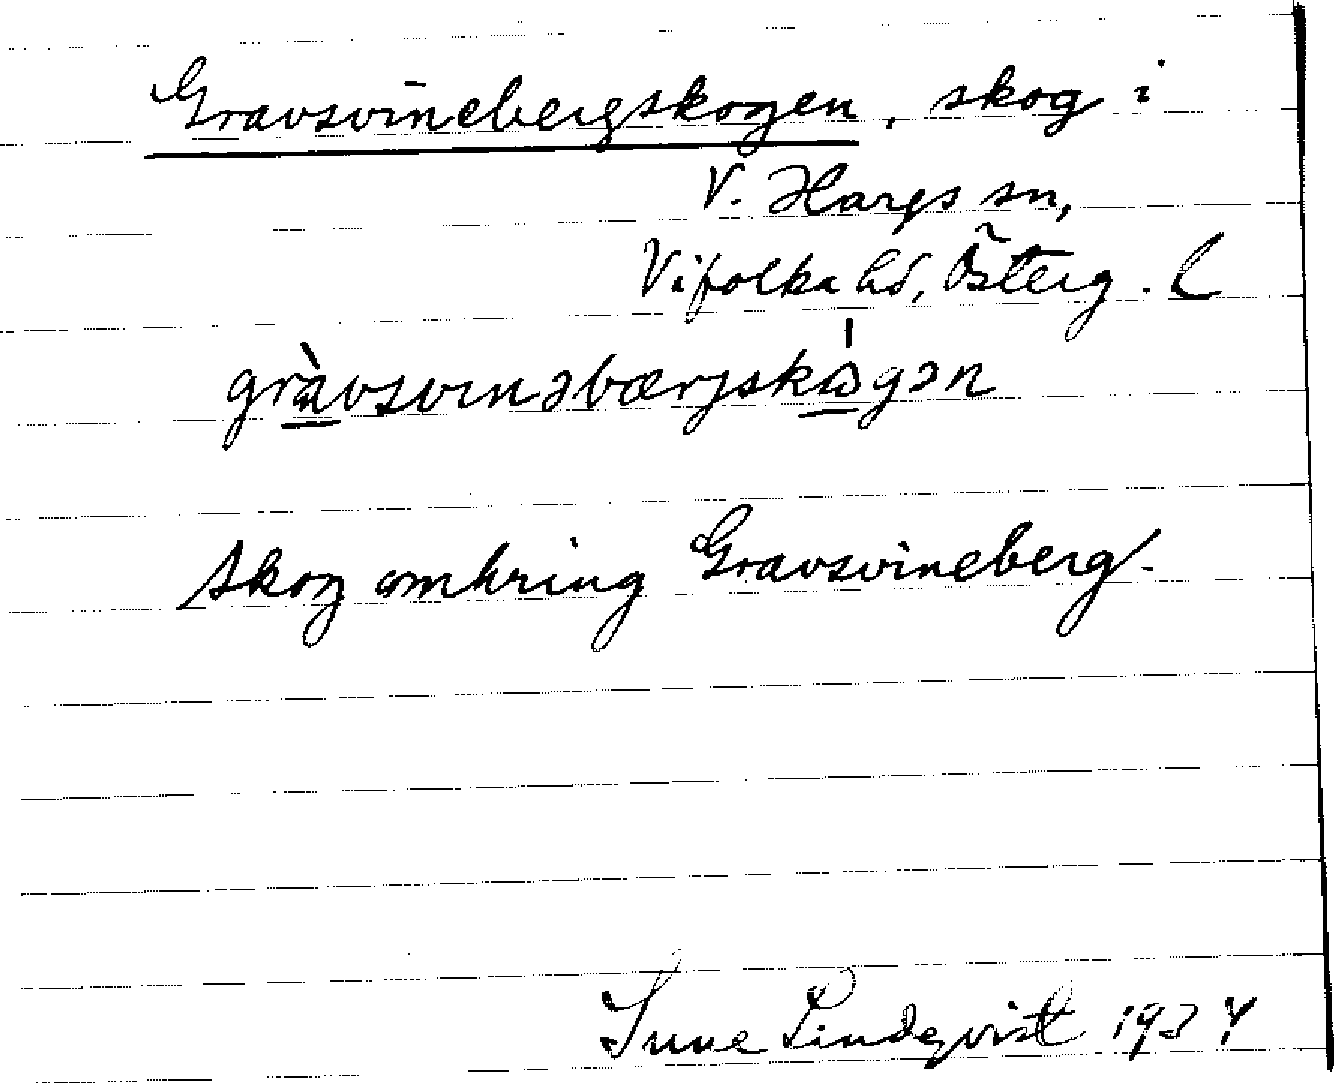 Gravsvinebergskogen, skog i
V. Hargs sn,
Vifolka hd, Österg. L
gràvsvinəbærjskωgən
Skog omkring Gravsvineberg.
Sune Lindqvist 1934